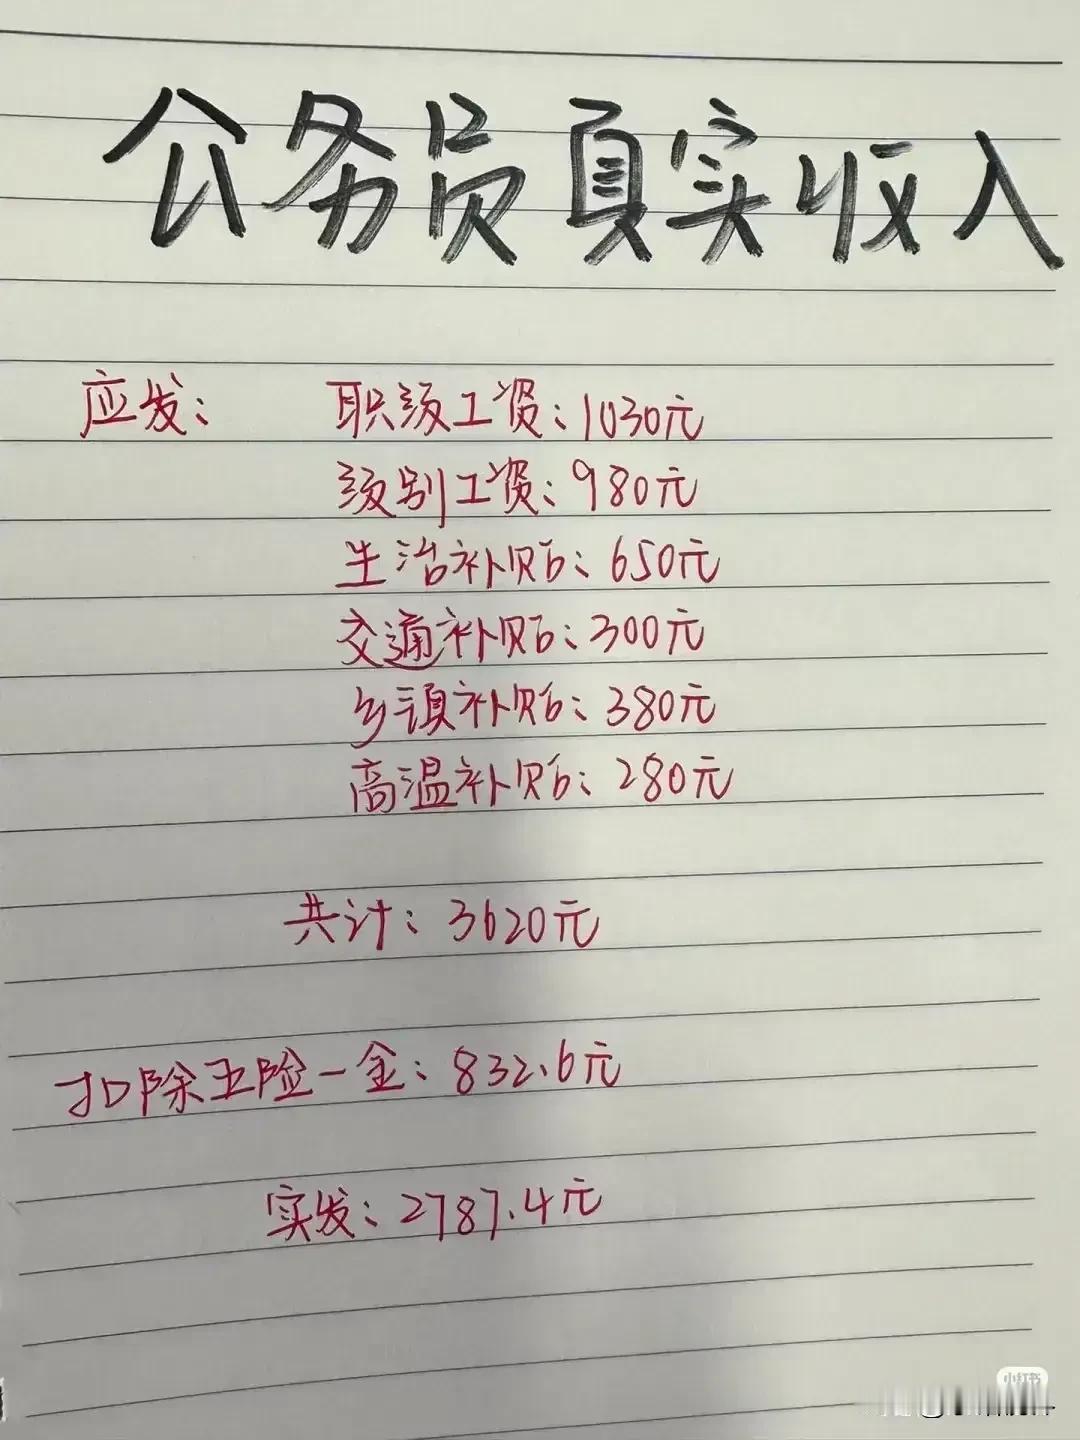 公务员真实收入
应发: 职级工资:1030元
级别工资:980元
生活补贴:650元
交通补贴:300元
乡镇补贴:380元
高温补贴:280元
共计:3620元
扣除五险一金:832.6元
实发:2787.4元
小红书